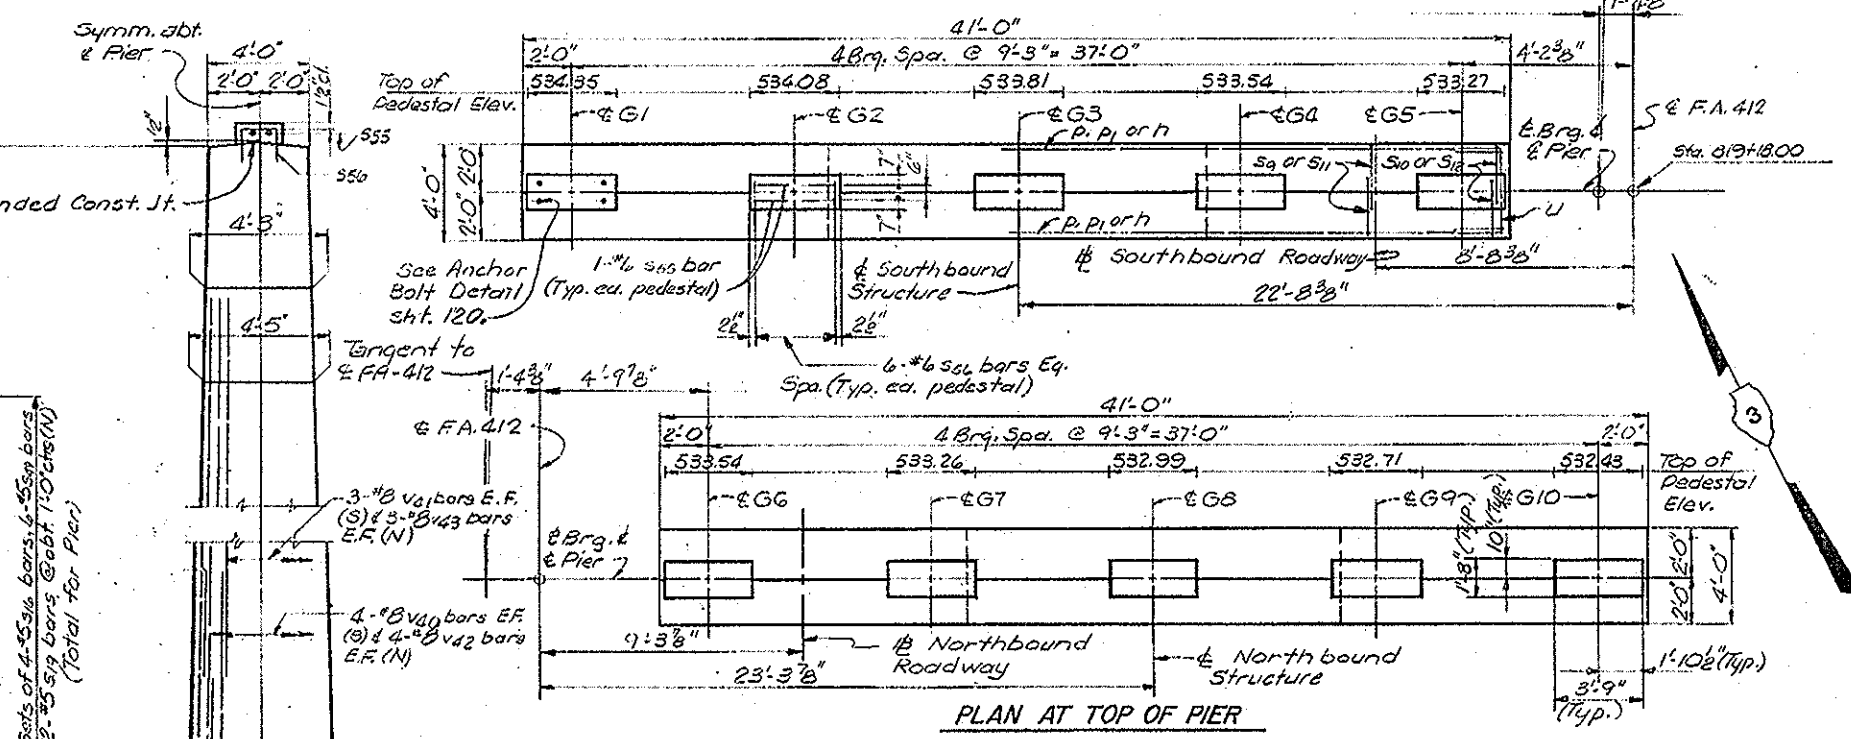 Symm. abt.
℄ Pier
4'-0"
2'-0" 2'-0"
1½"cl.
½"
S55
S56
nded Const. Jt.
4'-3"
4'-5"
3-#8 v41 bars E.F.
(S) & 3-#8 v43 bars
E.F. (N)
4-#8 v40 bars E.F.
(S) & 4-#8 v42 bars
E.F. (N)
(Total for Pier)
41'-0"
2'-0"
4 Brg. Spa. @ 9'-3" = 37'-0"
4'-2⅜"
Top of
Pedestal Elev.
534.35
534.08
533.81
533.54
533.27
℄ G1
℄ G2
℄ G3
℄ G4
℄ G5
℄ F.A. 412
p, p1 or h
S9 or S11
S10 or S12
℄ Brg. &
℄ Pier
Sta. 819+18.00
4'-0"
2'-0" 2'-0"
7"
6"
7"
p, p1 or h
U
See Anchor
Bolt Detail
sht. 120.
1-#6 S55 bar
(Typ. ea. pedestal)
℄ Southbound
Structure
Southbound Roadway
8'-8⅜"
22'-8⅜"
2½"
2½"
6-#6 S56 bars Eq.
Spa. (Typ. ea. pedestal)
Tangent to
℄ FA-412
1'-4⅜"
4'-9⅞"
℄ F.A. 412
41'-0"
2'-0"
4 Brg. Spa. @ 9'-3" = 37'-0"
2'-0"
533.54
533.26
532.99
532.71
532.43
Top of
Pedestal
Elev.
℄ G6
℄ G7
℄ G8
℄ G9
℄ G10
℄ Brg. &
℄ Pier
1'-8" (Typ.)
10" (Typ.)
2'-0" 2'-0"
4'-0"
9'-3⅞"
Northbound
Roadway
23'-3⅞"
℄ Northbound
Structure
1'-10½" (Typ.)
3'-9"
(Typ.)
PLAN AT TOP OF PIER
3